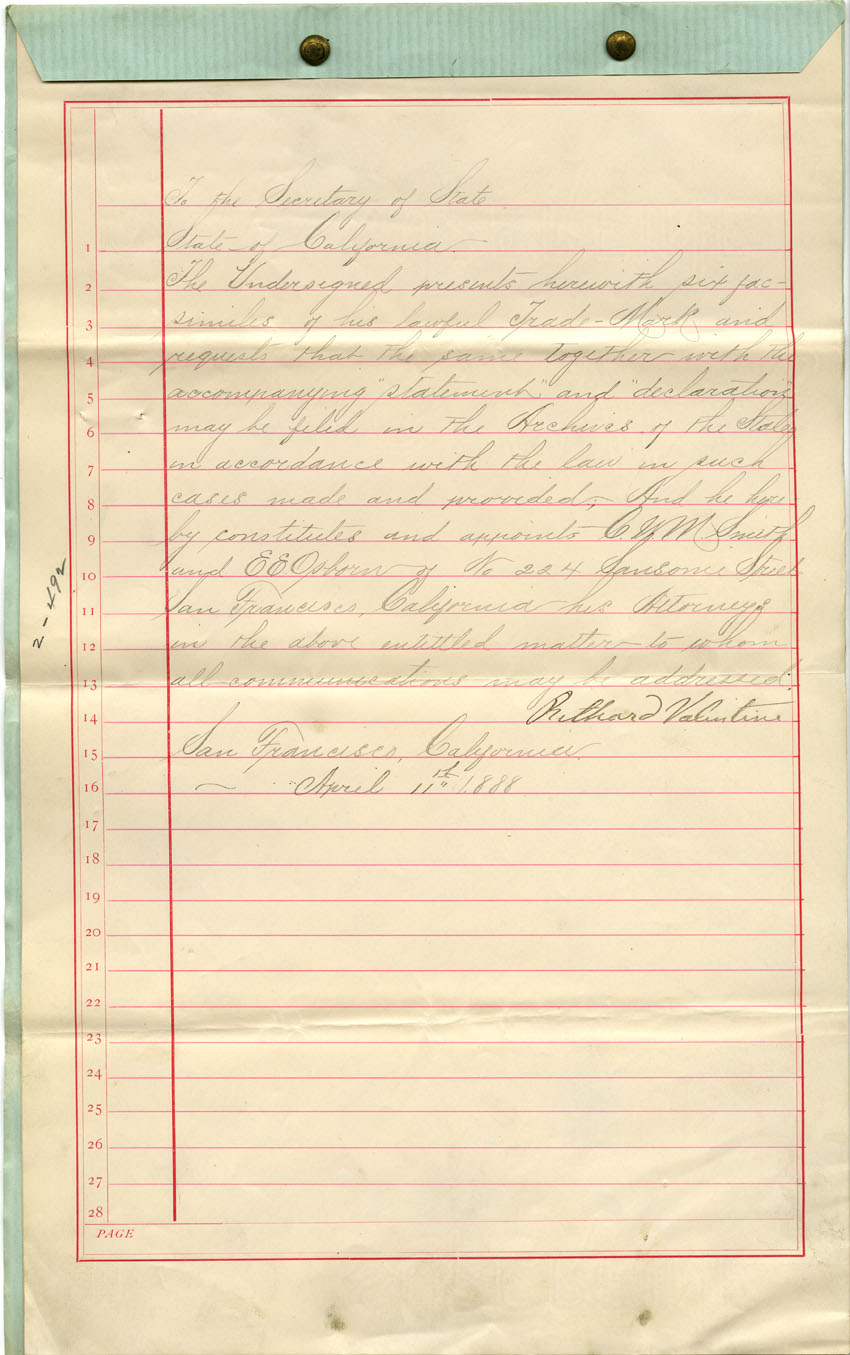 To the Secretary of State
State of California.
1
The Undersigned presents herewith six fac-
2
similes of his lawful Trade-Mark and
3
requests that the same together with the
4
accompanying "statement" and "declaration"
5
may be filed in the Archives of the State
6
in accordance with the law in such
7
cases made and provided, And he here-
8
by constitutes and appoints Smith
9
and E E Osborn of No 224 Sansome Street
10
San Francisco, California his Attorneys
11
in the above entittled matter to whom
12
all communications may be addressed.
13
Richard Valentine
14
San Francisco, California.
15
April 11th 1888
16
17
18
19
20
21
22
23
24
25
26
27
28
PAGE
2-492